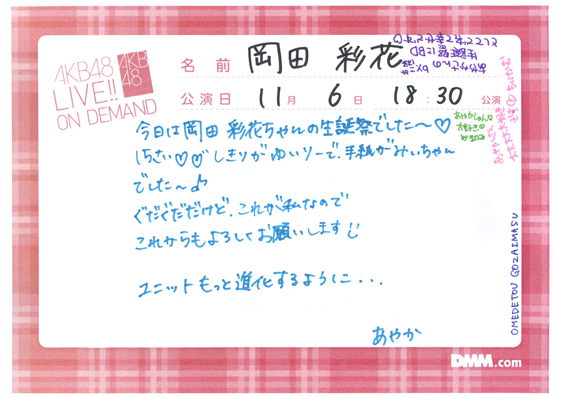 AKB48
LIVE!!
ON DEMAND
AKB
48
名前 岡田 彩花
公演日 11月 6日 18:30 公演
今日は岡田 彩花ちゃんの生誕祭でした〜♡
15さい♡♡ しきりがゆいりーで、手紙がみぃちゃん
でした〜♪
ぐだぐだだけど、これが私なので
これからもよろしくお願いします
ユニットもっと進化するように...
あやか
OMEDETOU GOZAIMASU
DMM.com